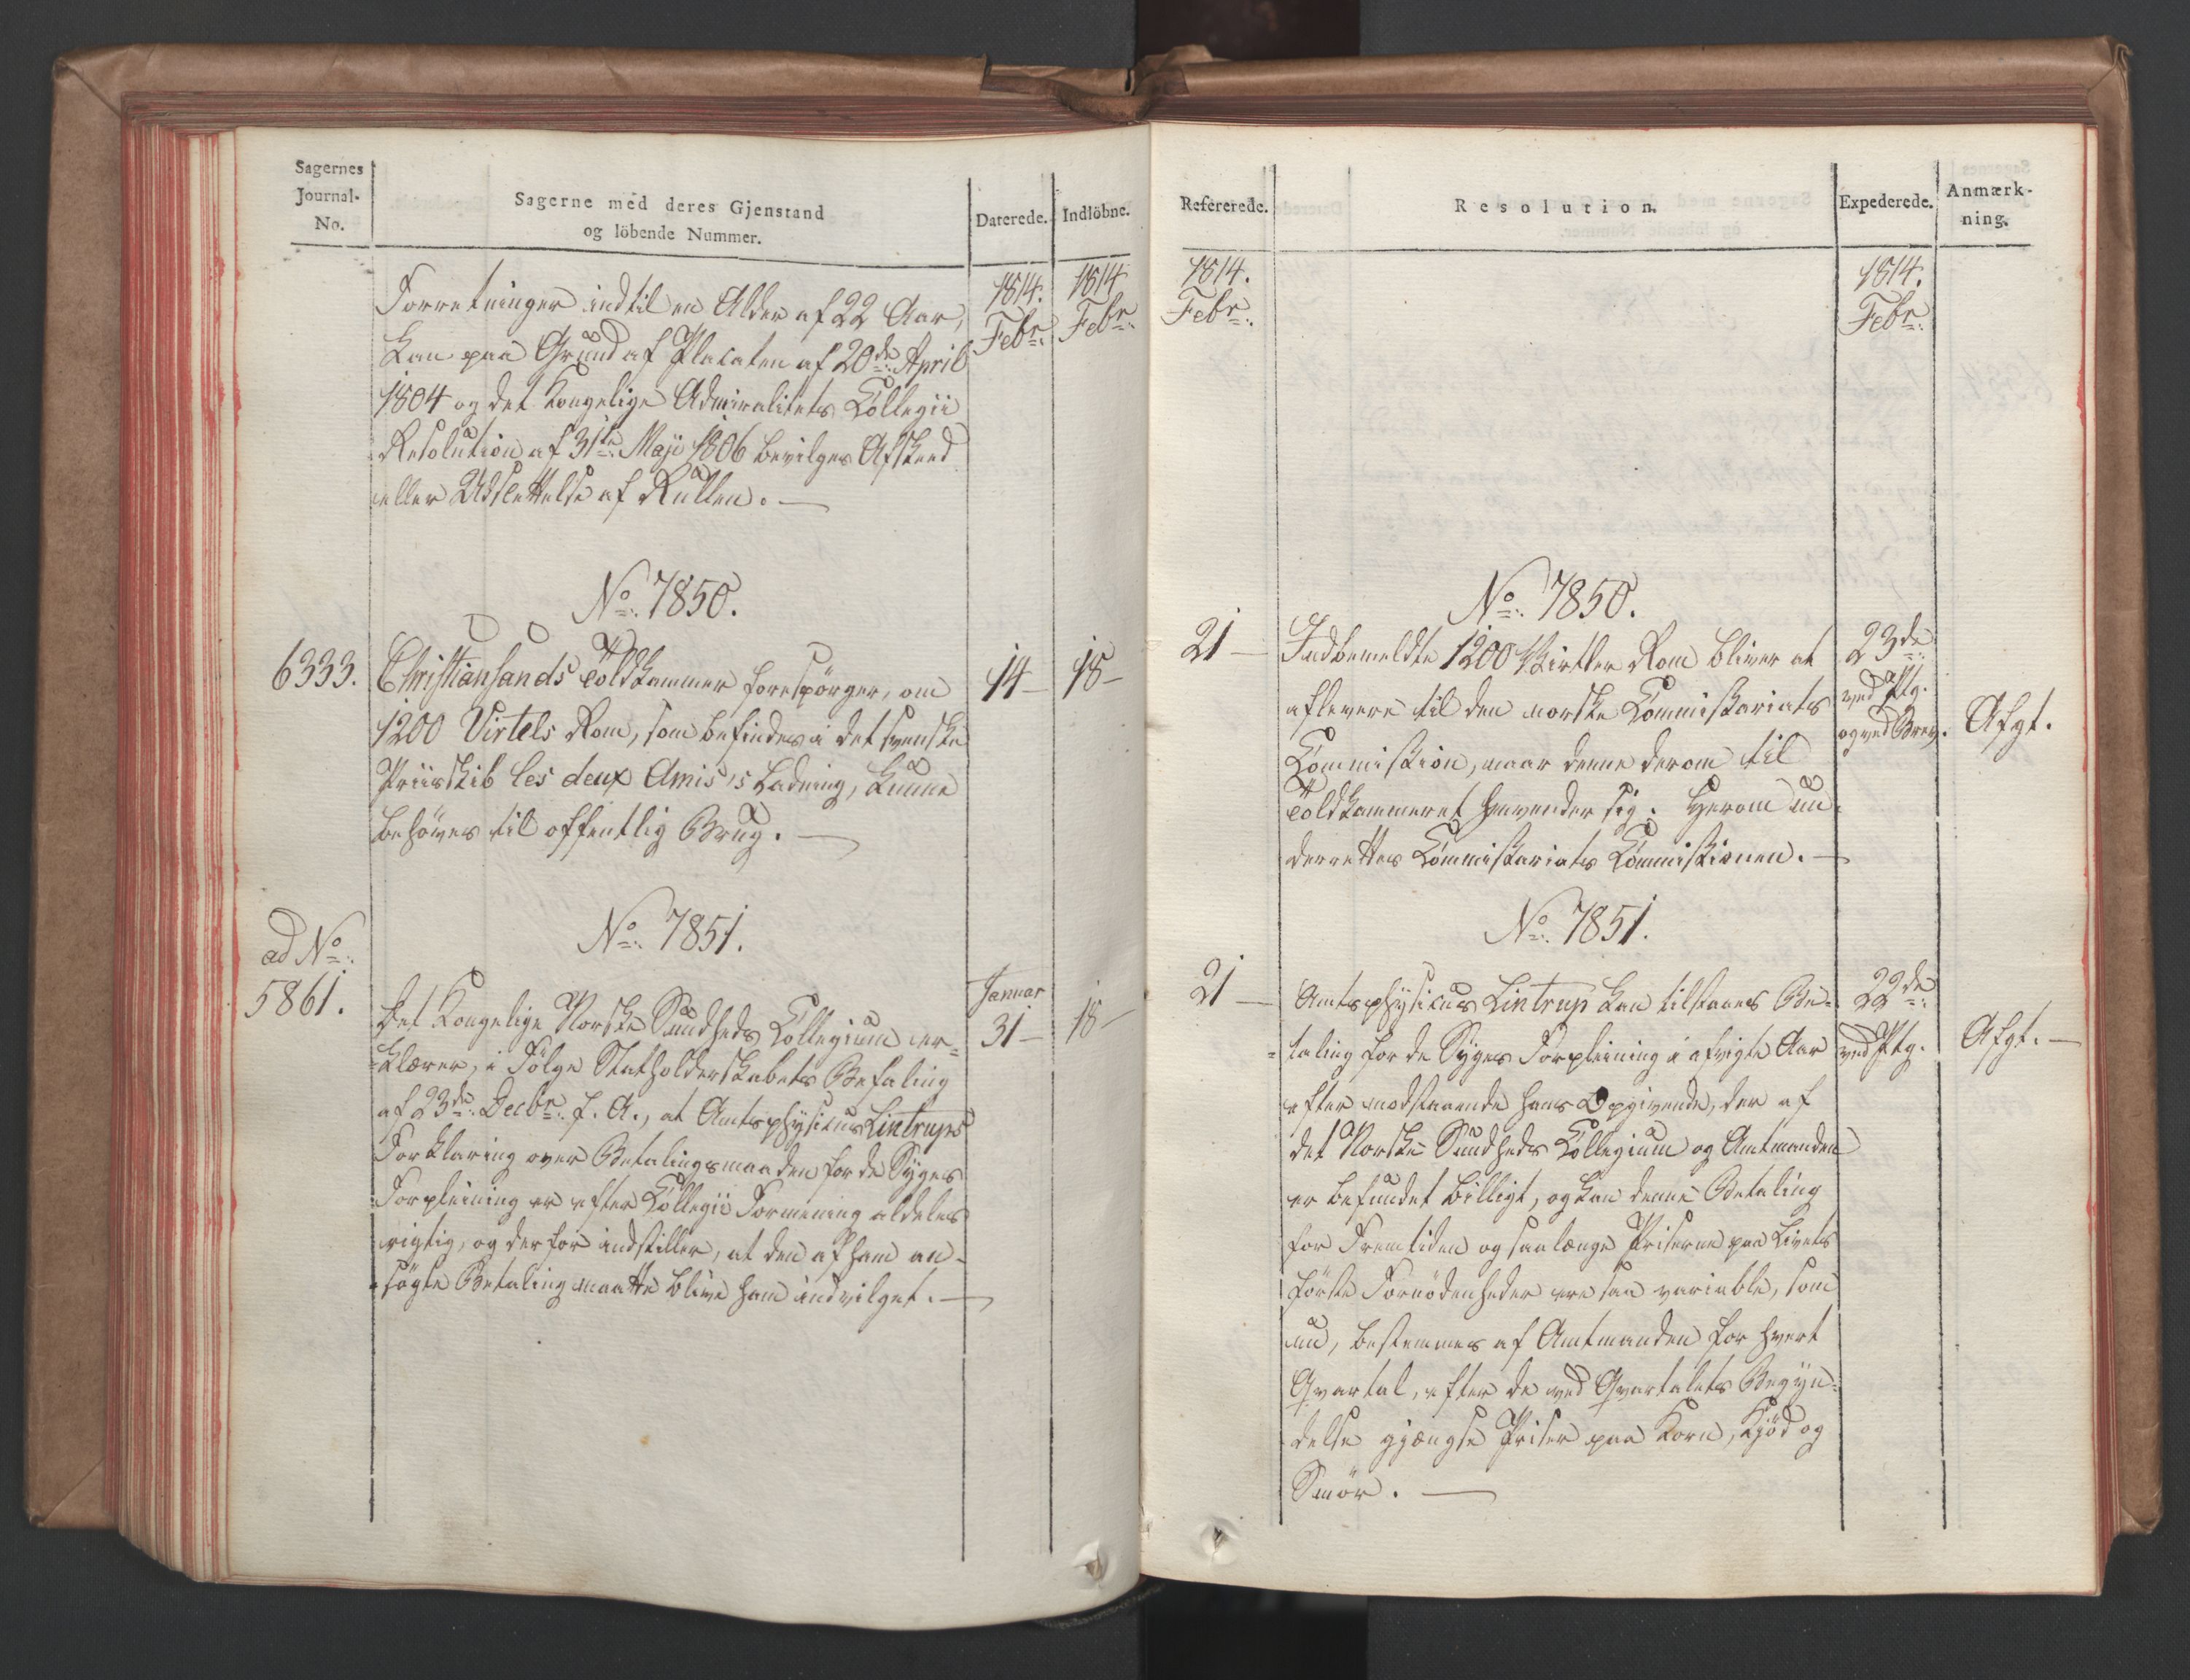 Sagernes
Journal-
No.
Sagerne med deres Gjenstand
og löbende Nummer.
Daterede.
Indlöbne.
1814.
Febr:
1814
Febr:
Forretninger indtil en Alder af 22 Aar,
kan paa Grund af Placaten af 20de April
1804 og det Kongelige Admiralitets Collegii
Resolution af 31te Maji 1806 bevilges Afskeed
eller Udslettelse af Rullen. —
No: 7850.
6333.
Christiansands Toldkammer forespörger, om
1200 Virtels Rom, som befindes i det svenske
Priisskib les deux Amis's Ladning, kunne
behöves til offentlig Brug. —
14 —
18 —
No: 7851.
ad No:
5861.
Det Kongelige Norske Sundheds Collegium er-
klærer, i Fölge Statholderskabets Befaling
af 23de Decbr: f. A., at Amtsphysicus Lintrups
Forklaring over Betalingsmaaden for de Syges
Forpleining er efter Collegii Formening aldeles
rigtig, og derfor indstiller, at den af ham an-
sögte Betaling maatte blive ham indvilget. —
Januar
31 —
18 —
Refererede.
Resolution.
Expederede.
Anmærk-
ning.
1814.
Febr:
1814.
Febr:
No: 7850.
21 —
Indbemeldte 1200 Virtler Rom bliver at
aflevere til den norske Commissariats
Commission, naar denne derom til
Toldkammeret henvender sig. Herom un-
derrettes Commissariats Commissionen. —
23de
ved Ptg.
og ved Brev.
Afgt.
No: 7851.
21 —
Amtsphysicus Lintrup kan tilstaaes Be-
taling for de Syges Forpleining i afvigte Aar
efter modstaaende hans Opgivende, der af
det Norske Sundheds Collegium og Amtmanden
er befundet billigt, og kan denne Betaling
for Fremtiden og saalænge Priserne paa Livets
förste Fornödenheder ere saa variable, som
nu, bestemmes af Amtmanden for hvert
Qvartal, efter de ved Qvartalets Begyn-
delse gjængse Priser paa Korn, Kjöd og
Smör. —
22de
ved Ptg.
Afgt. —